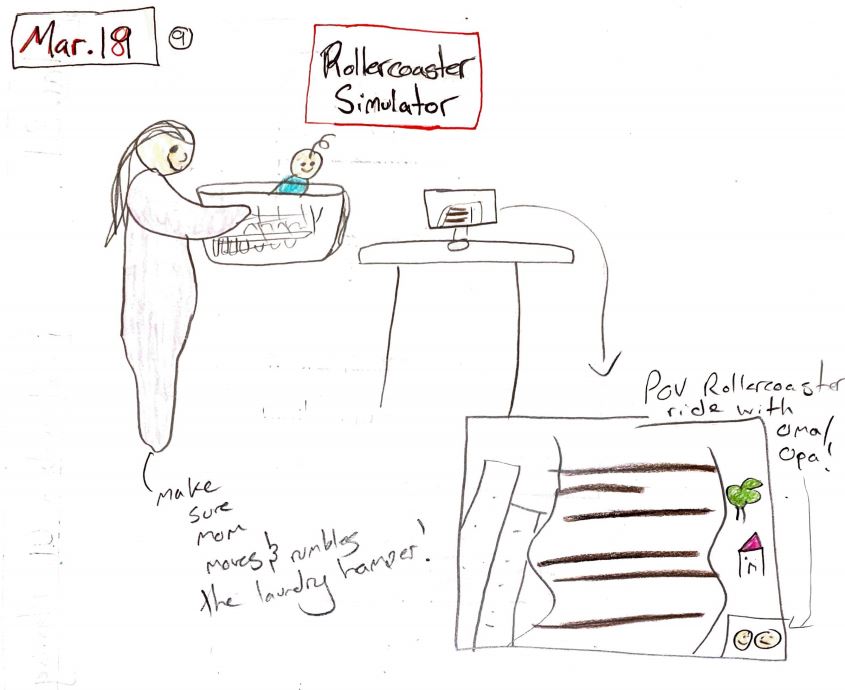 Mar. 18
9
Rollercoaster
Simulator
POV Rollercoaster
ride with
Oma/
Opa!
make
sure
mom
moves & rumbles
the laundry hamper!